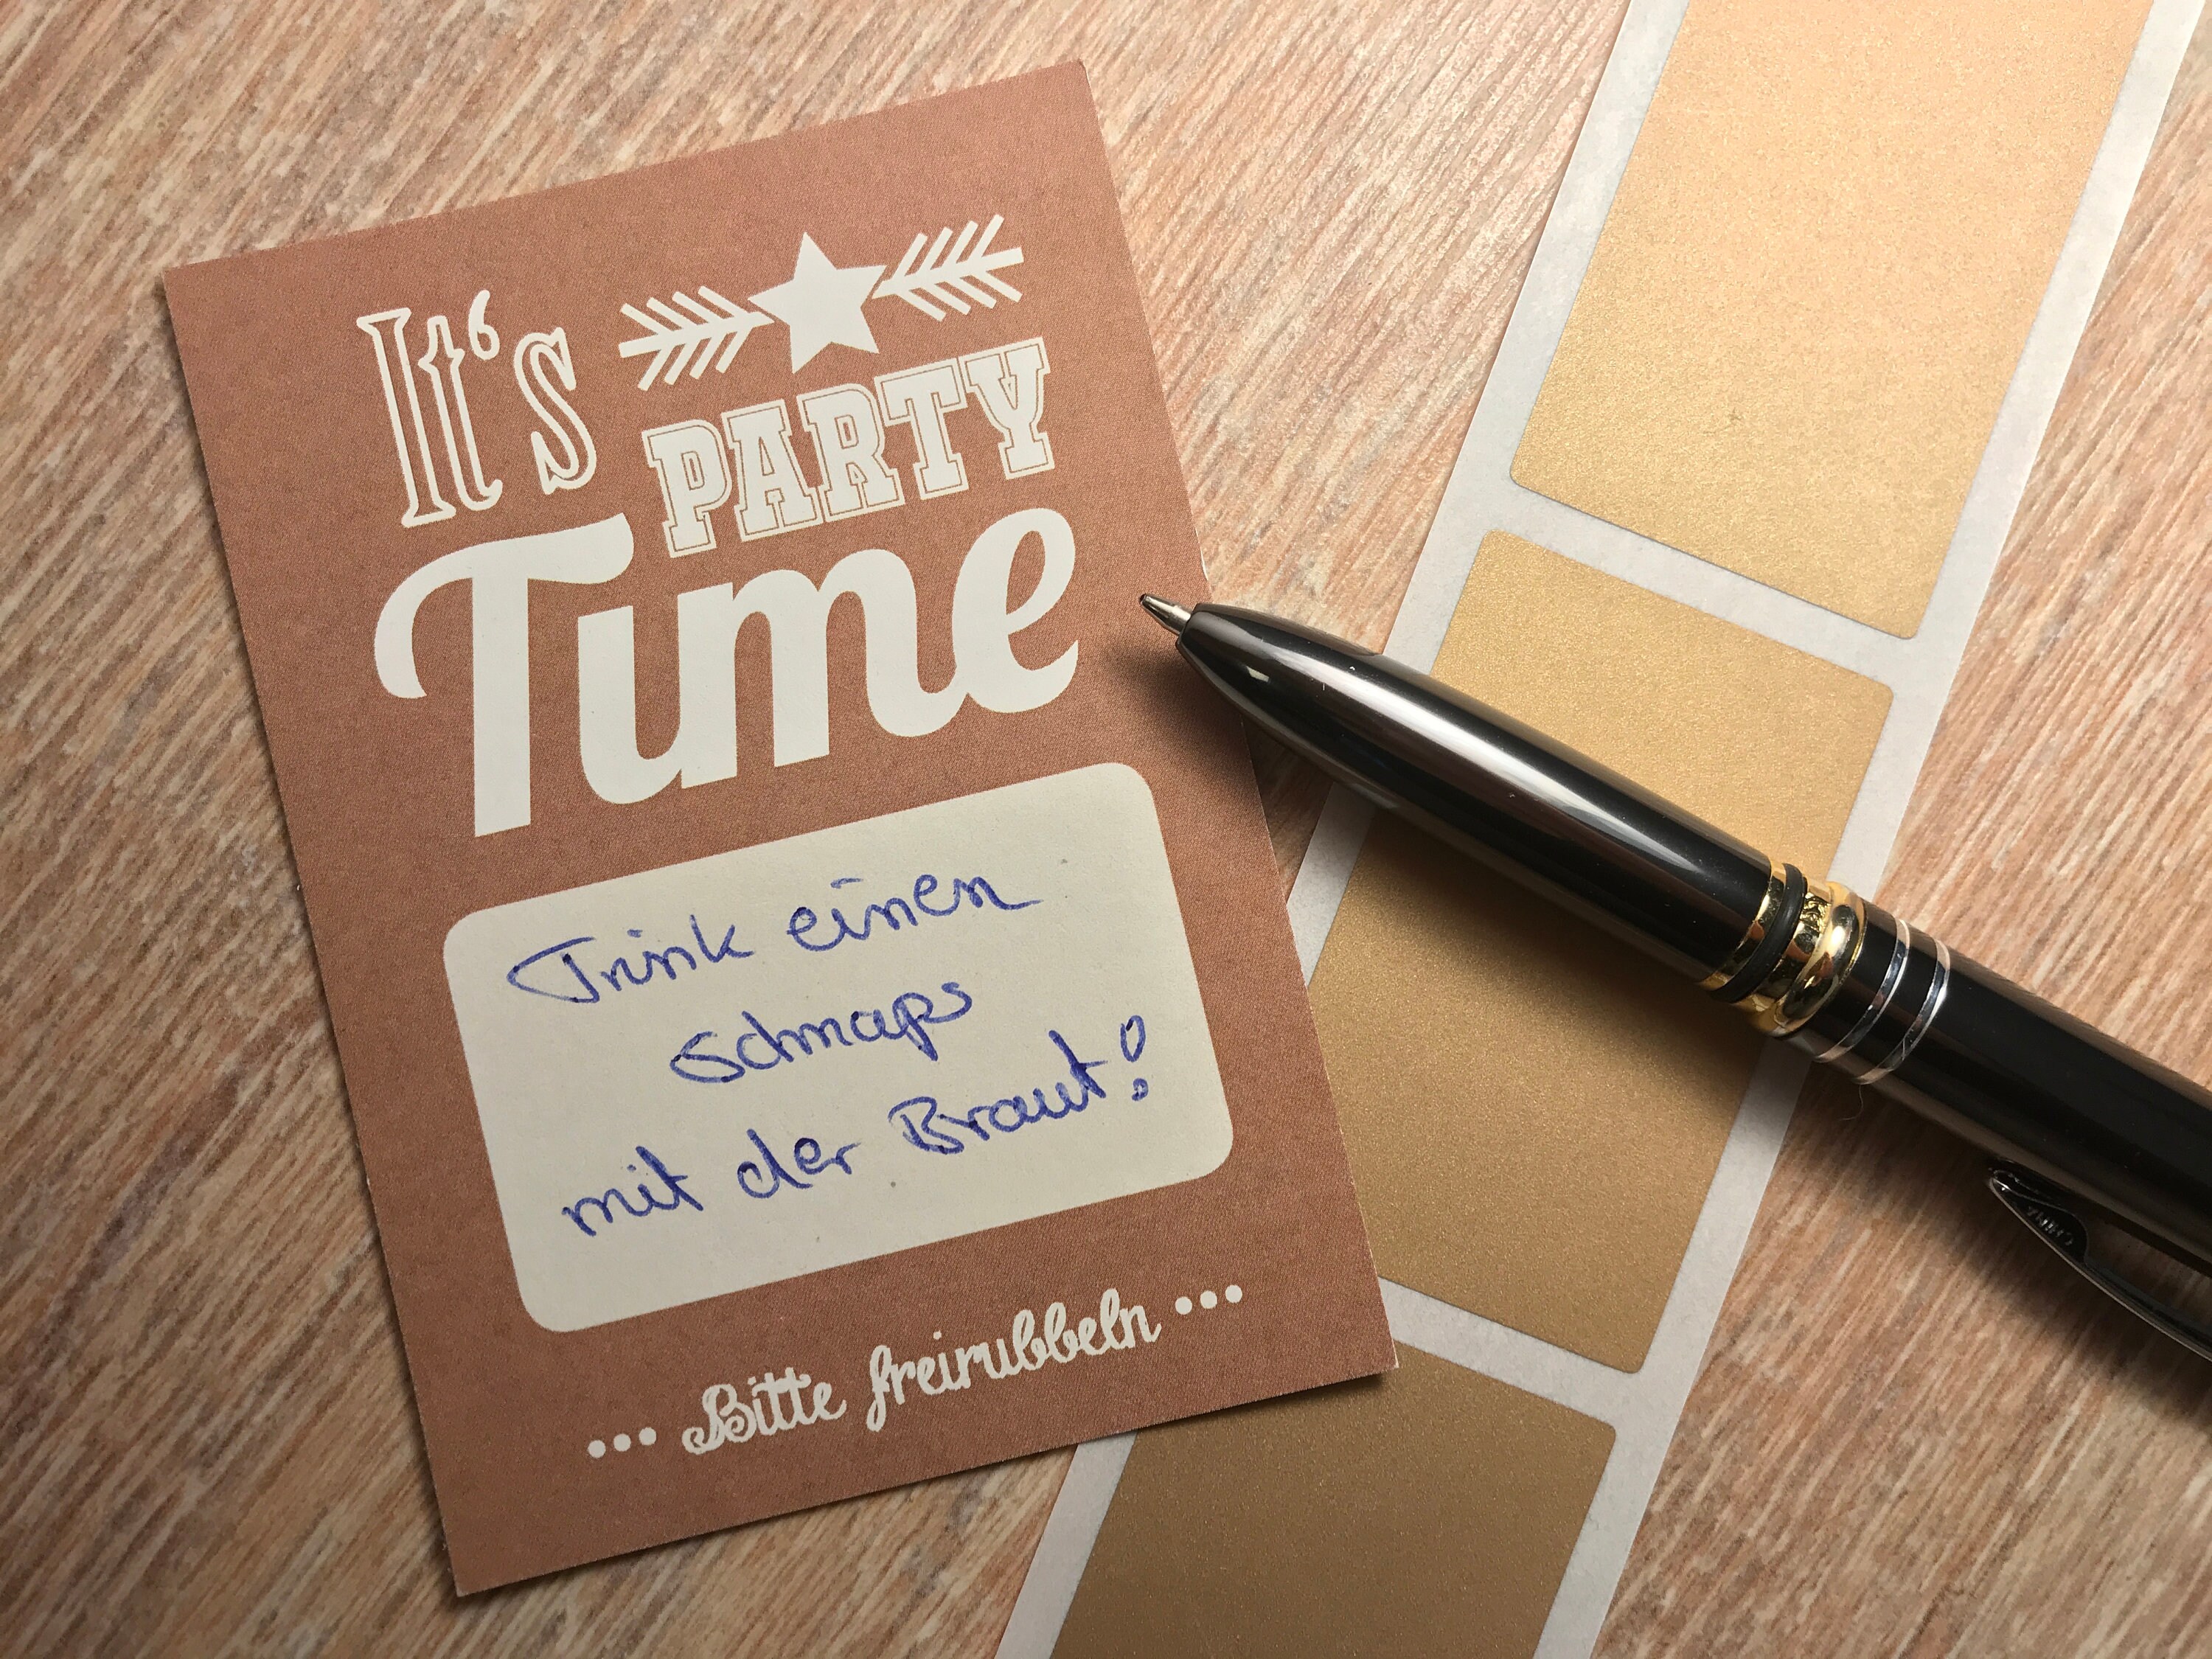 It's
PARTY
Time
Trink einen
Schnaps
mit der Braut!
••• Bitte freirubbeln •••